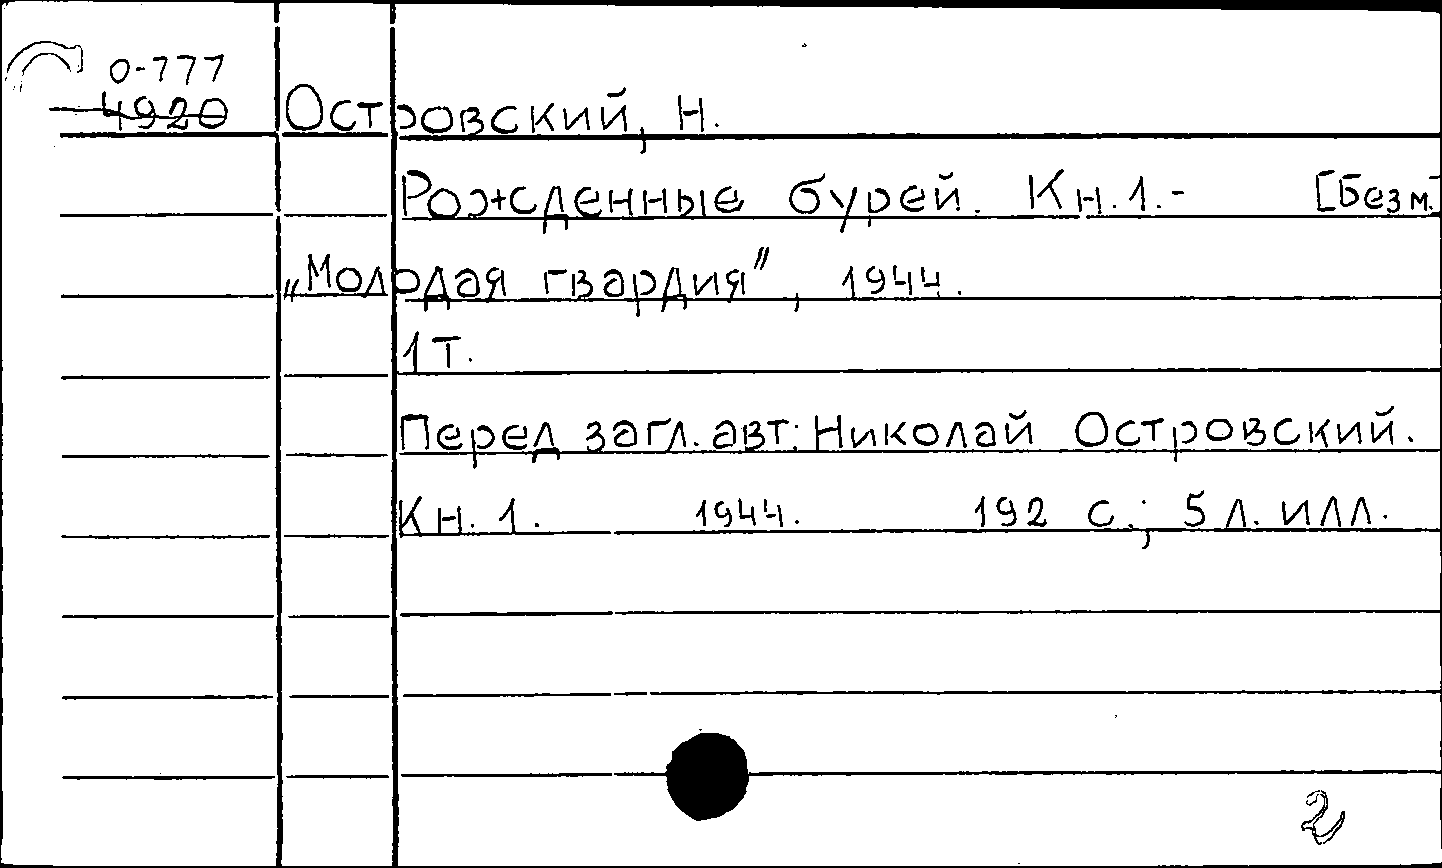 О-777
4920
Островский, Н.
Рожденные бурей. Кн.1.- [Без м.]
„Молодая гвардия", 1944.
1 т.
Перед загл. авт.: Николай Островский.
Кн. 1. 1944. 192 с.; 5 л. илл.
2